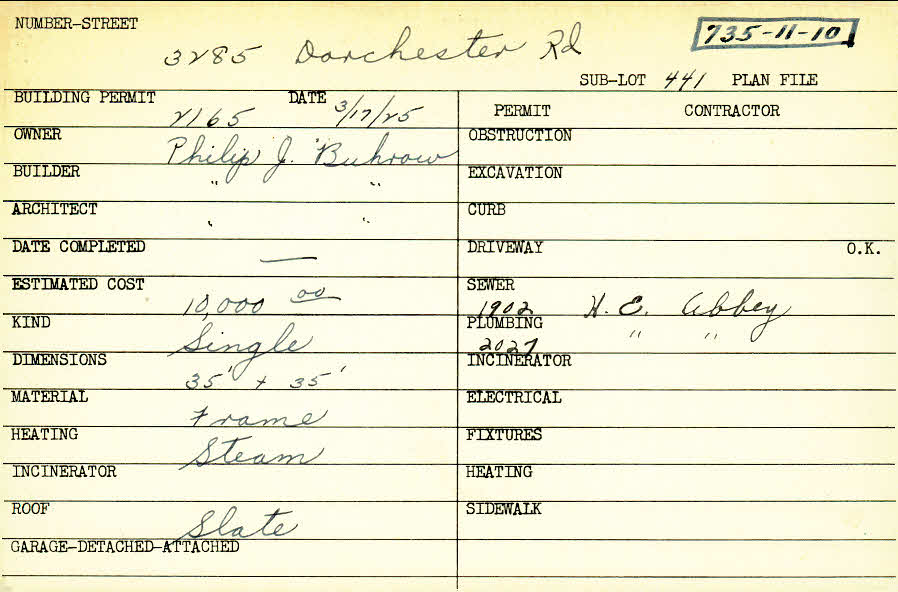 NUMBER-STREET
3285 Dorchester Rd
735-11-10
SUB-LOT 441 PLAN FILE
BUILDING PERMIT 2165 DATE 3/17/25
PERMIT CONTRACTOR
OWNER Philip J. Buhrow
OBSTRUCTION
BUILDER " "
EXCAVATION
ARCHITECT " "
CURB
DATE COMPLETED —
DRIVEWAY O.K.
ESTIMATED COST 10,000 00
SEWER 1902 H. E. Abbey
KIND Single
PLUMBING 2027 " "
DIMENSIONS 35' + 35'
INCINERATOR
MATERIAL Frame
ELECTRICAL
HEATING Steam
FIXTURES
INCINERATOR
HEATING
ROOF Slate
SIDEWALK
GARAGE-DETACHED-ATTACHED